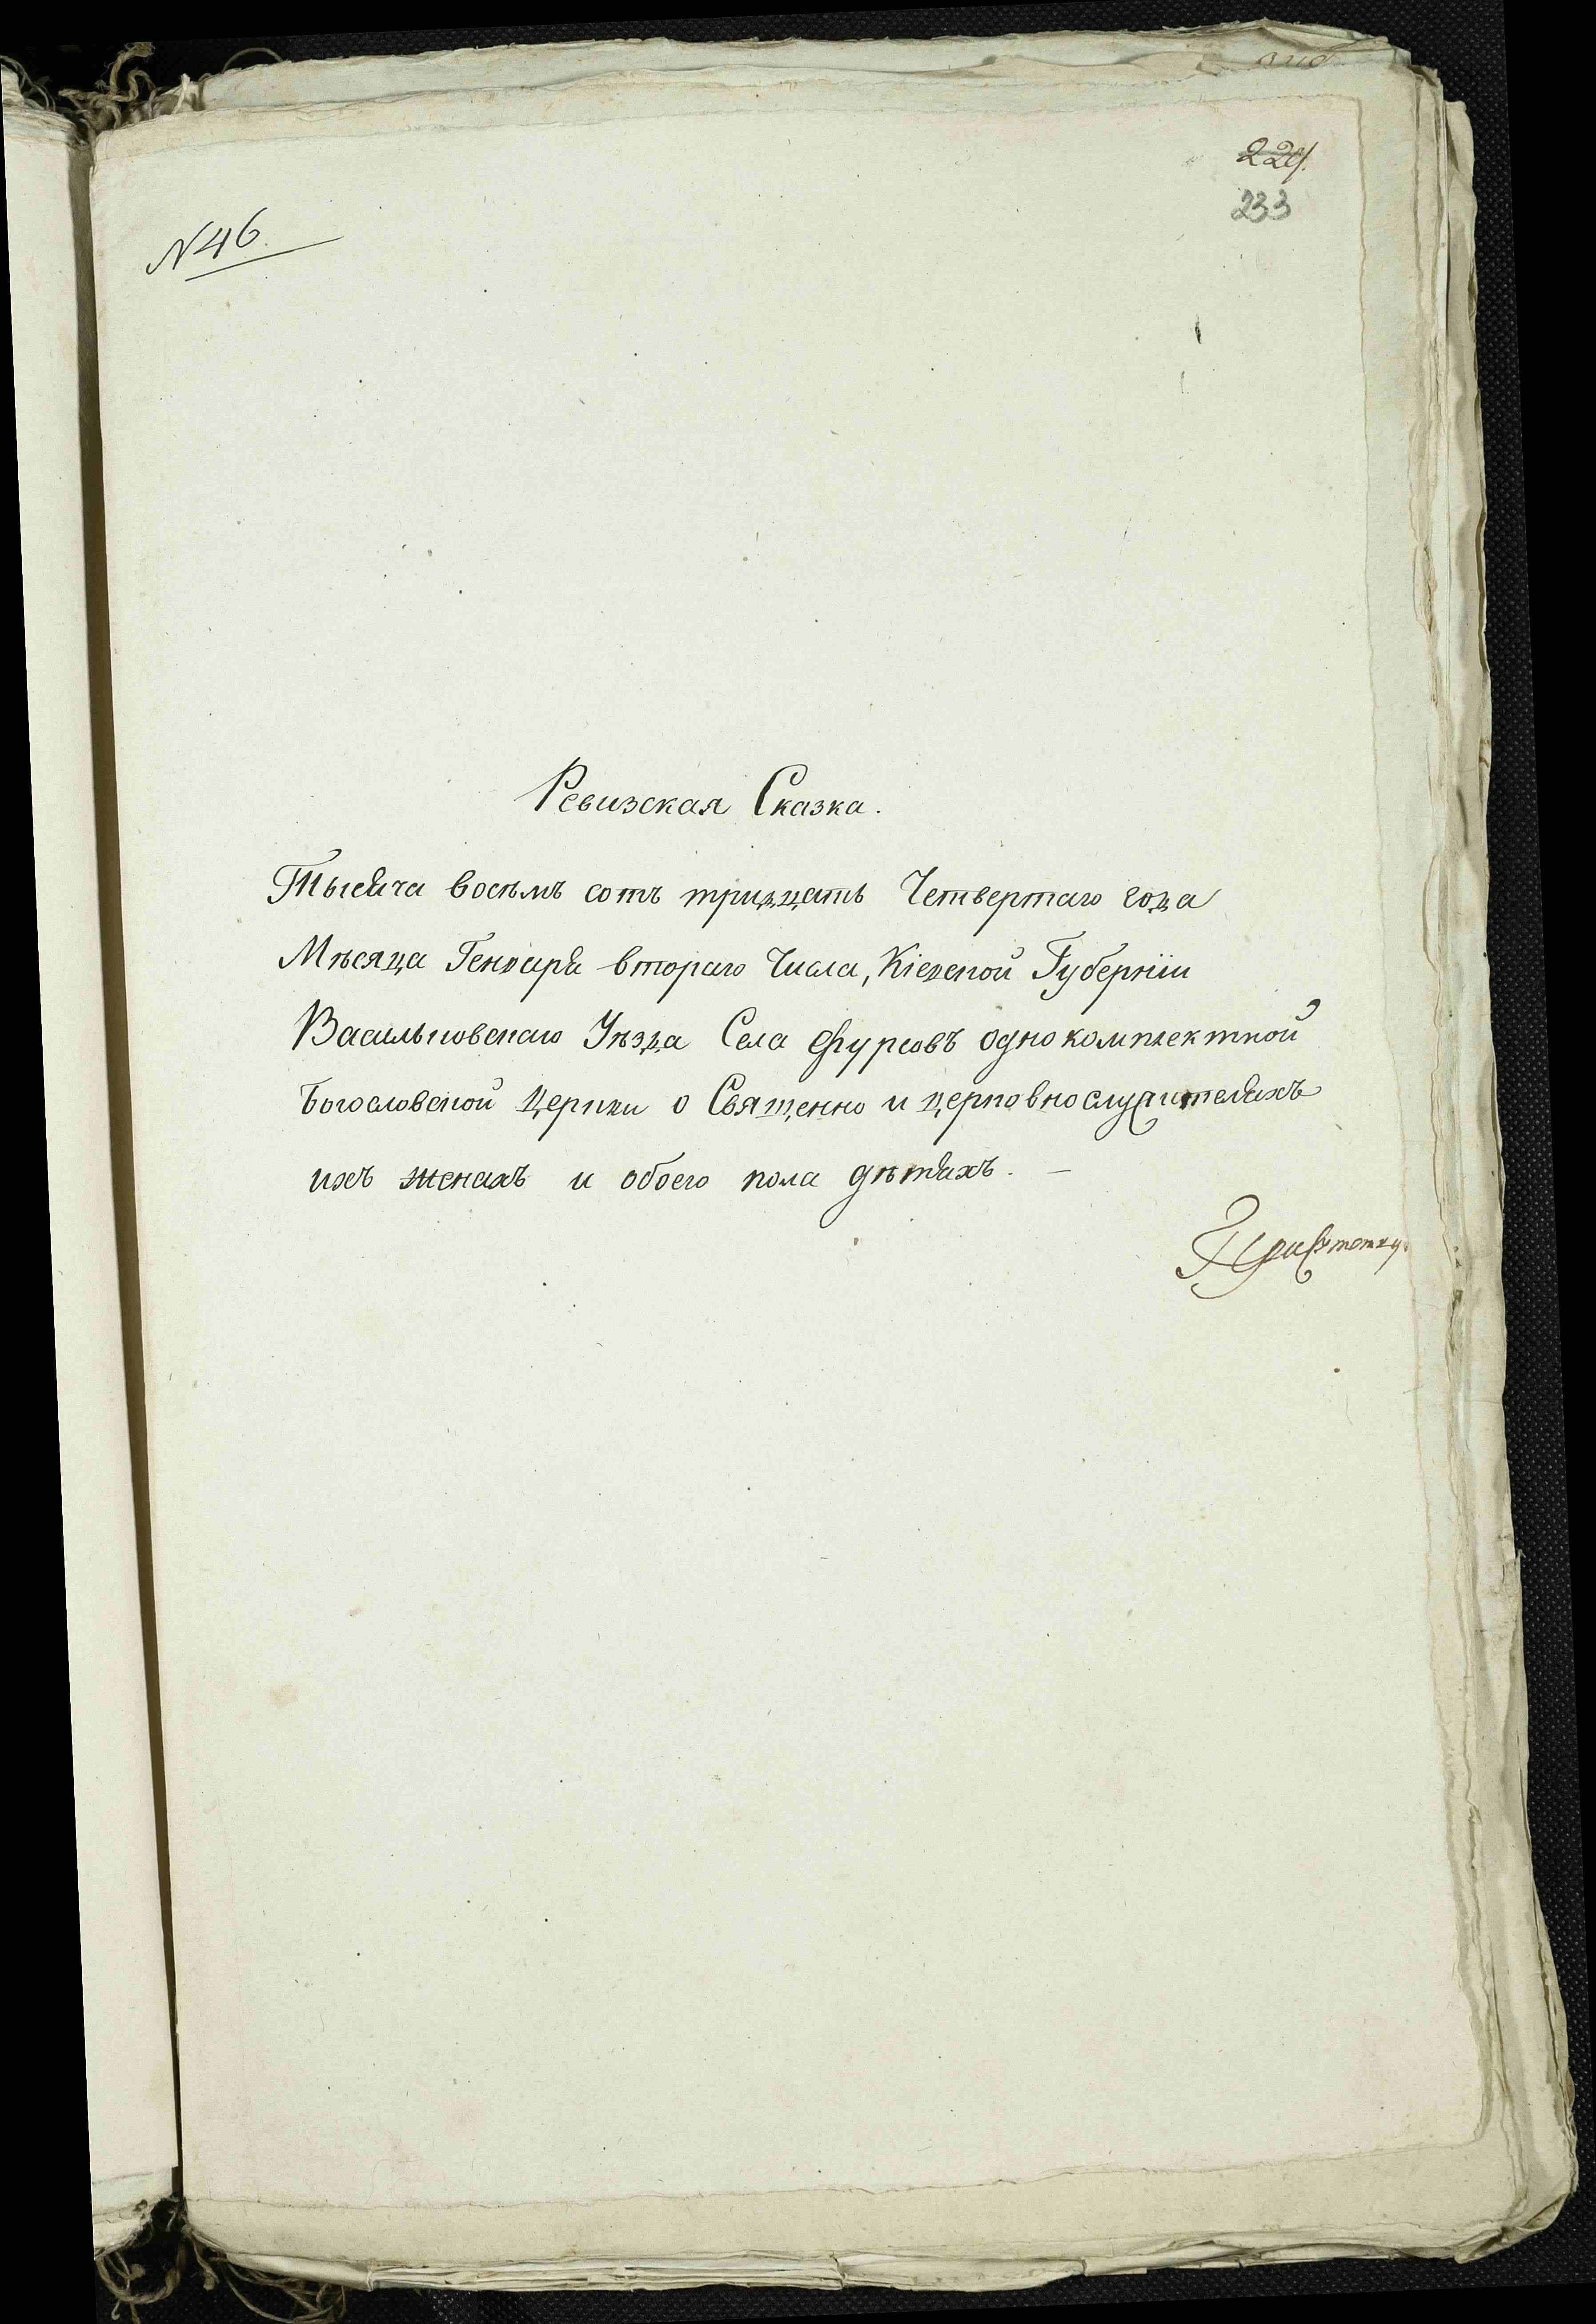 229.
233
N 46.
Ревизская Сказка.
Тысяча восемь сотъ тридцать Четвертаго года
Мѣсяца Генваря втораго Числа, Кіевской Губерніи
Васильковскаго Уѣзда Села Фурсовъ однокомплектной
Богословской Церкви о Священно и церковнослужителяхъ
ихъ женахъ и обоего пола дѣтяхъ. —